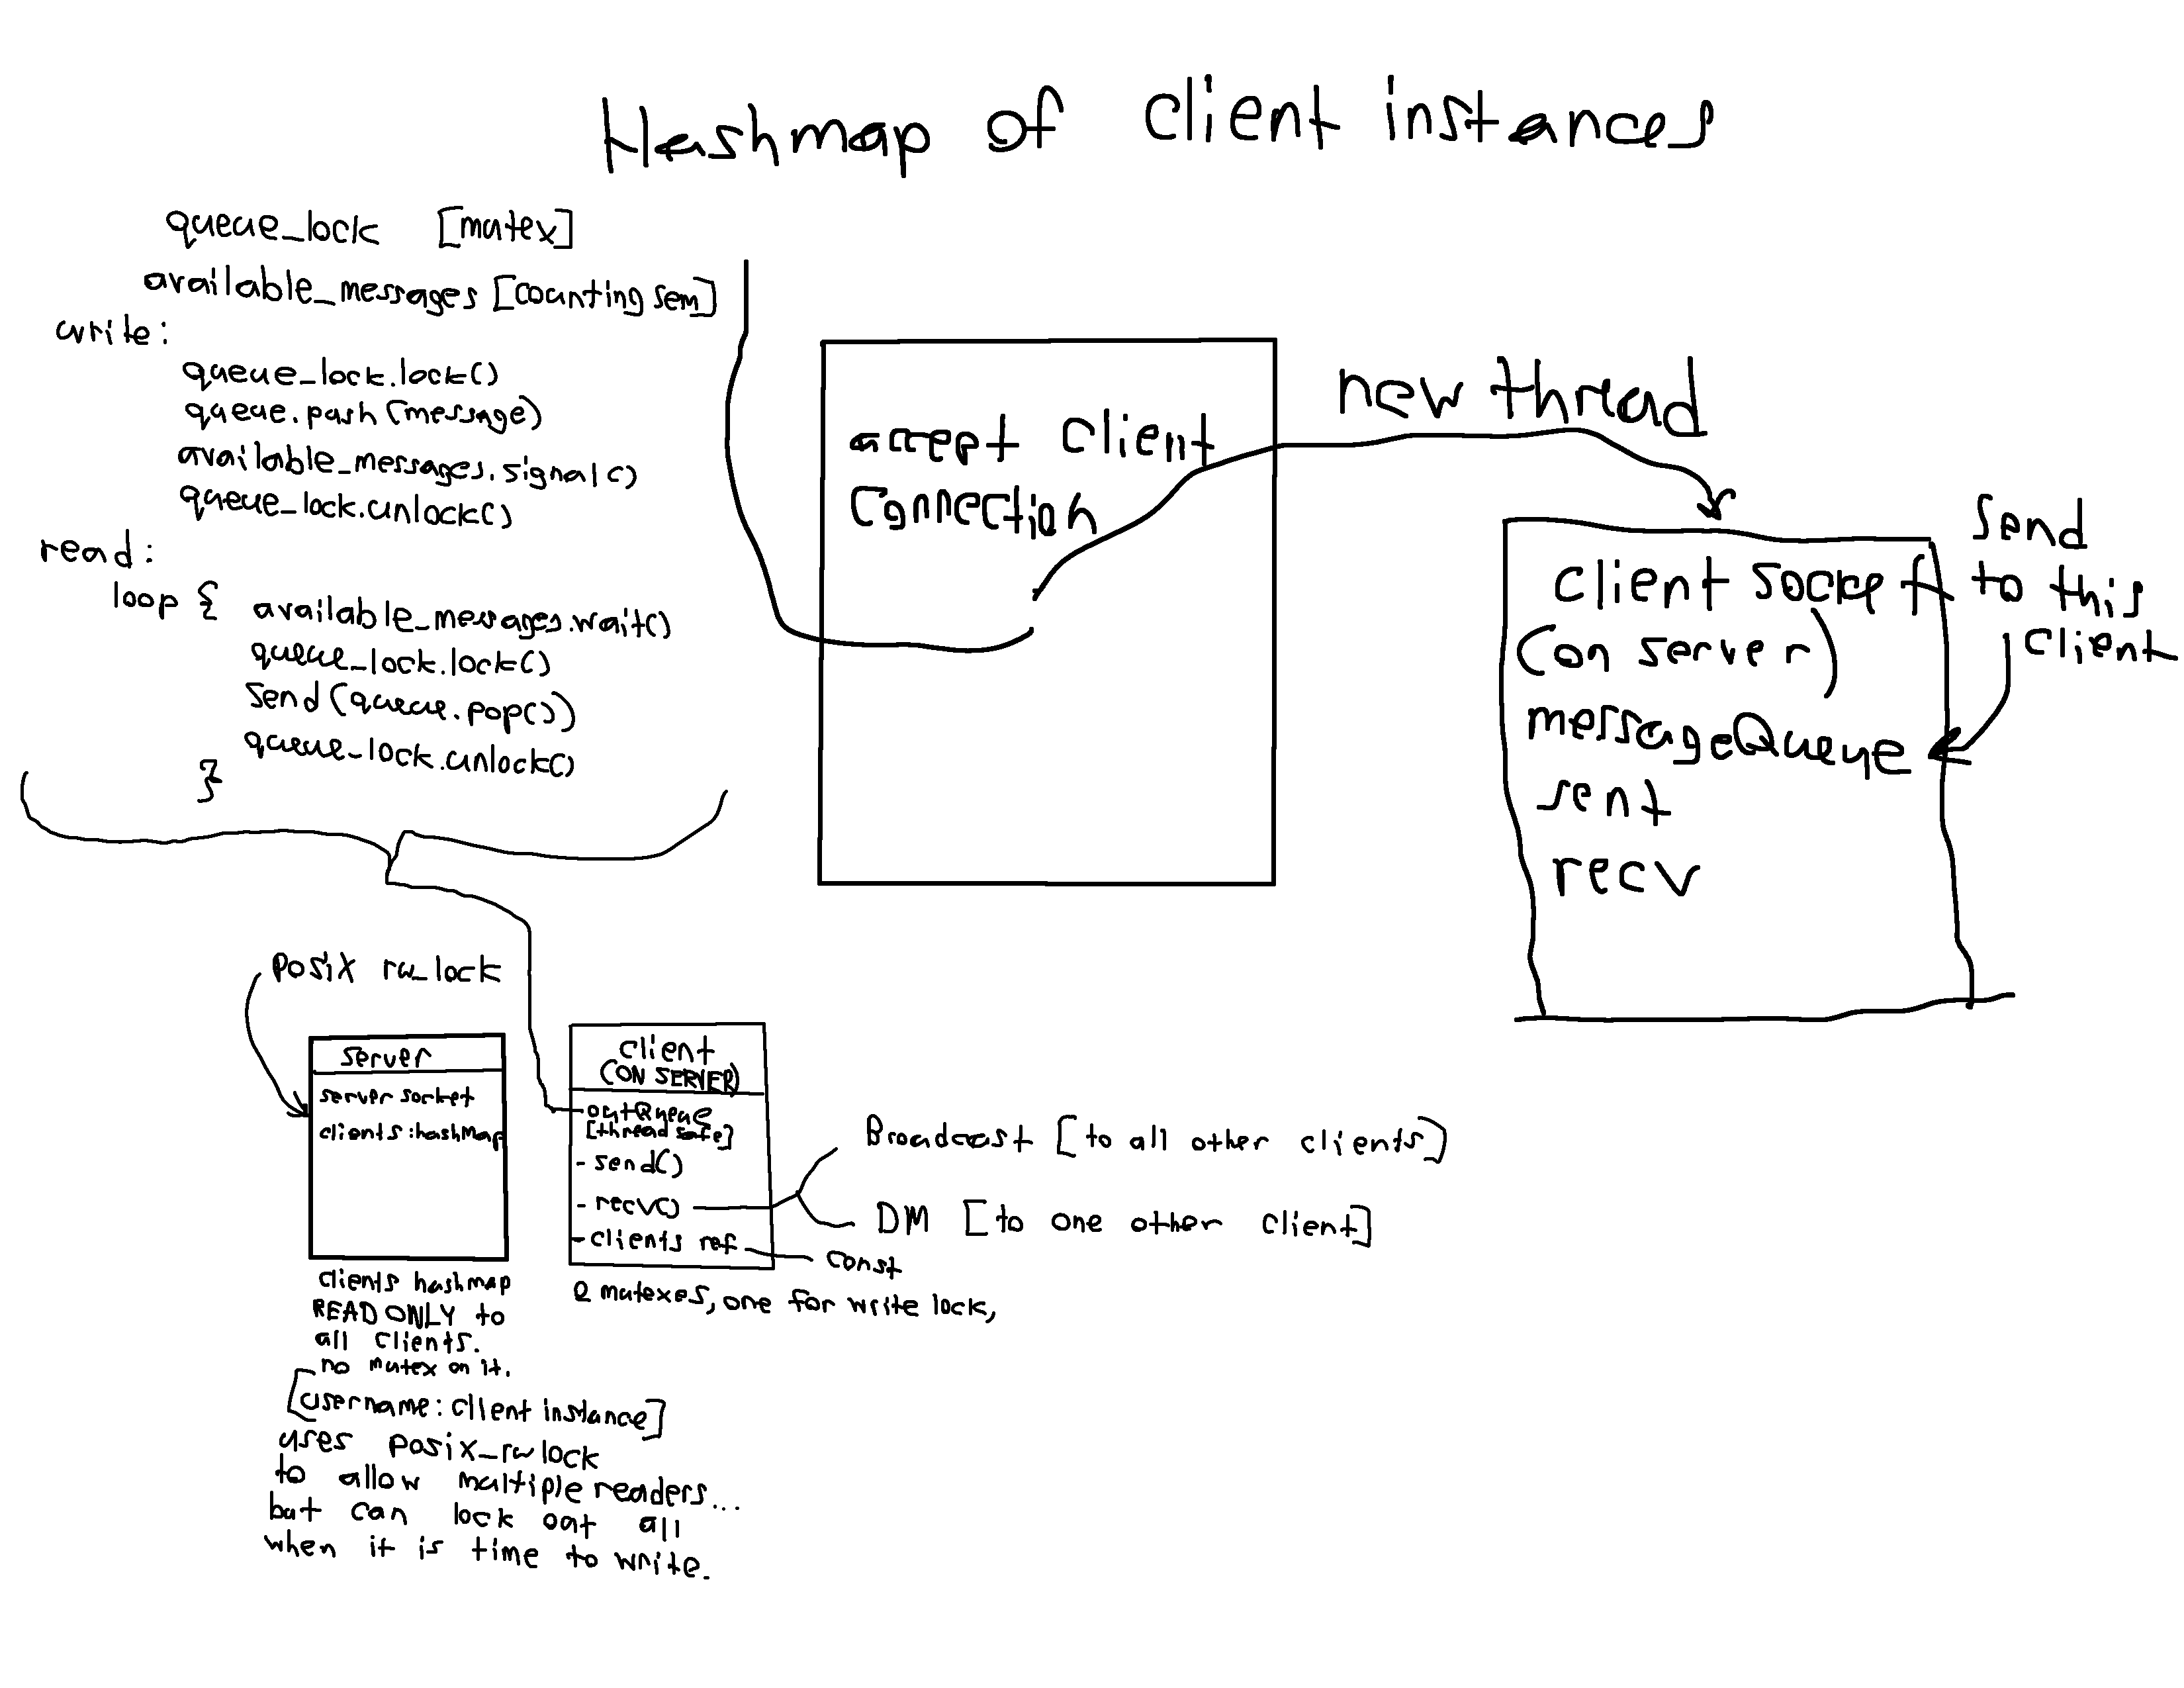 Hashmap of client instances
queue_lock [mutex]
available_messages [counting sem]
write:
queue_lock.lock()
queue.push(message)
available_messages.signal()
queue_lock.unlock()
read:
loop { available_messages.wait()
queue_lock.lock()
send(queue.pop())
queue_lock.unlock()
}
accept client
connection
new thread
client socket
(on server)
messageQueue
sent
recv
send
to this
client
posix rw_lock
server
server socket
clients:hashMap
clients hashmap
READ ONLY to
all clients.
no mutex on it.
[username: client instance]
uses posix_rwlock
to allow multiple readers...
but can lock out all
when it is time to write.
client
(ON SERVER)
- outQueue
[thread safe]
- send()
- recv()
- clients ref
const
2 mutexes, one for write lock,
Broadcast [to all other clients]
DM [to one other client]